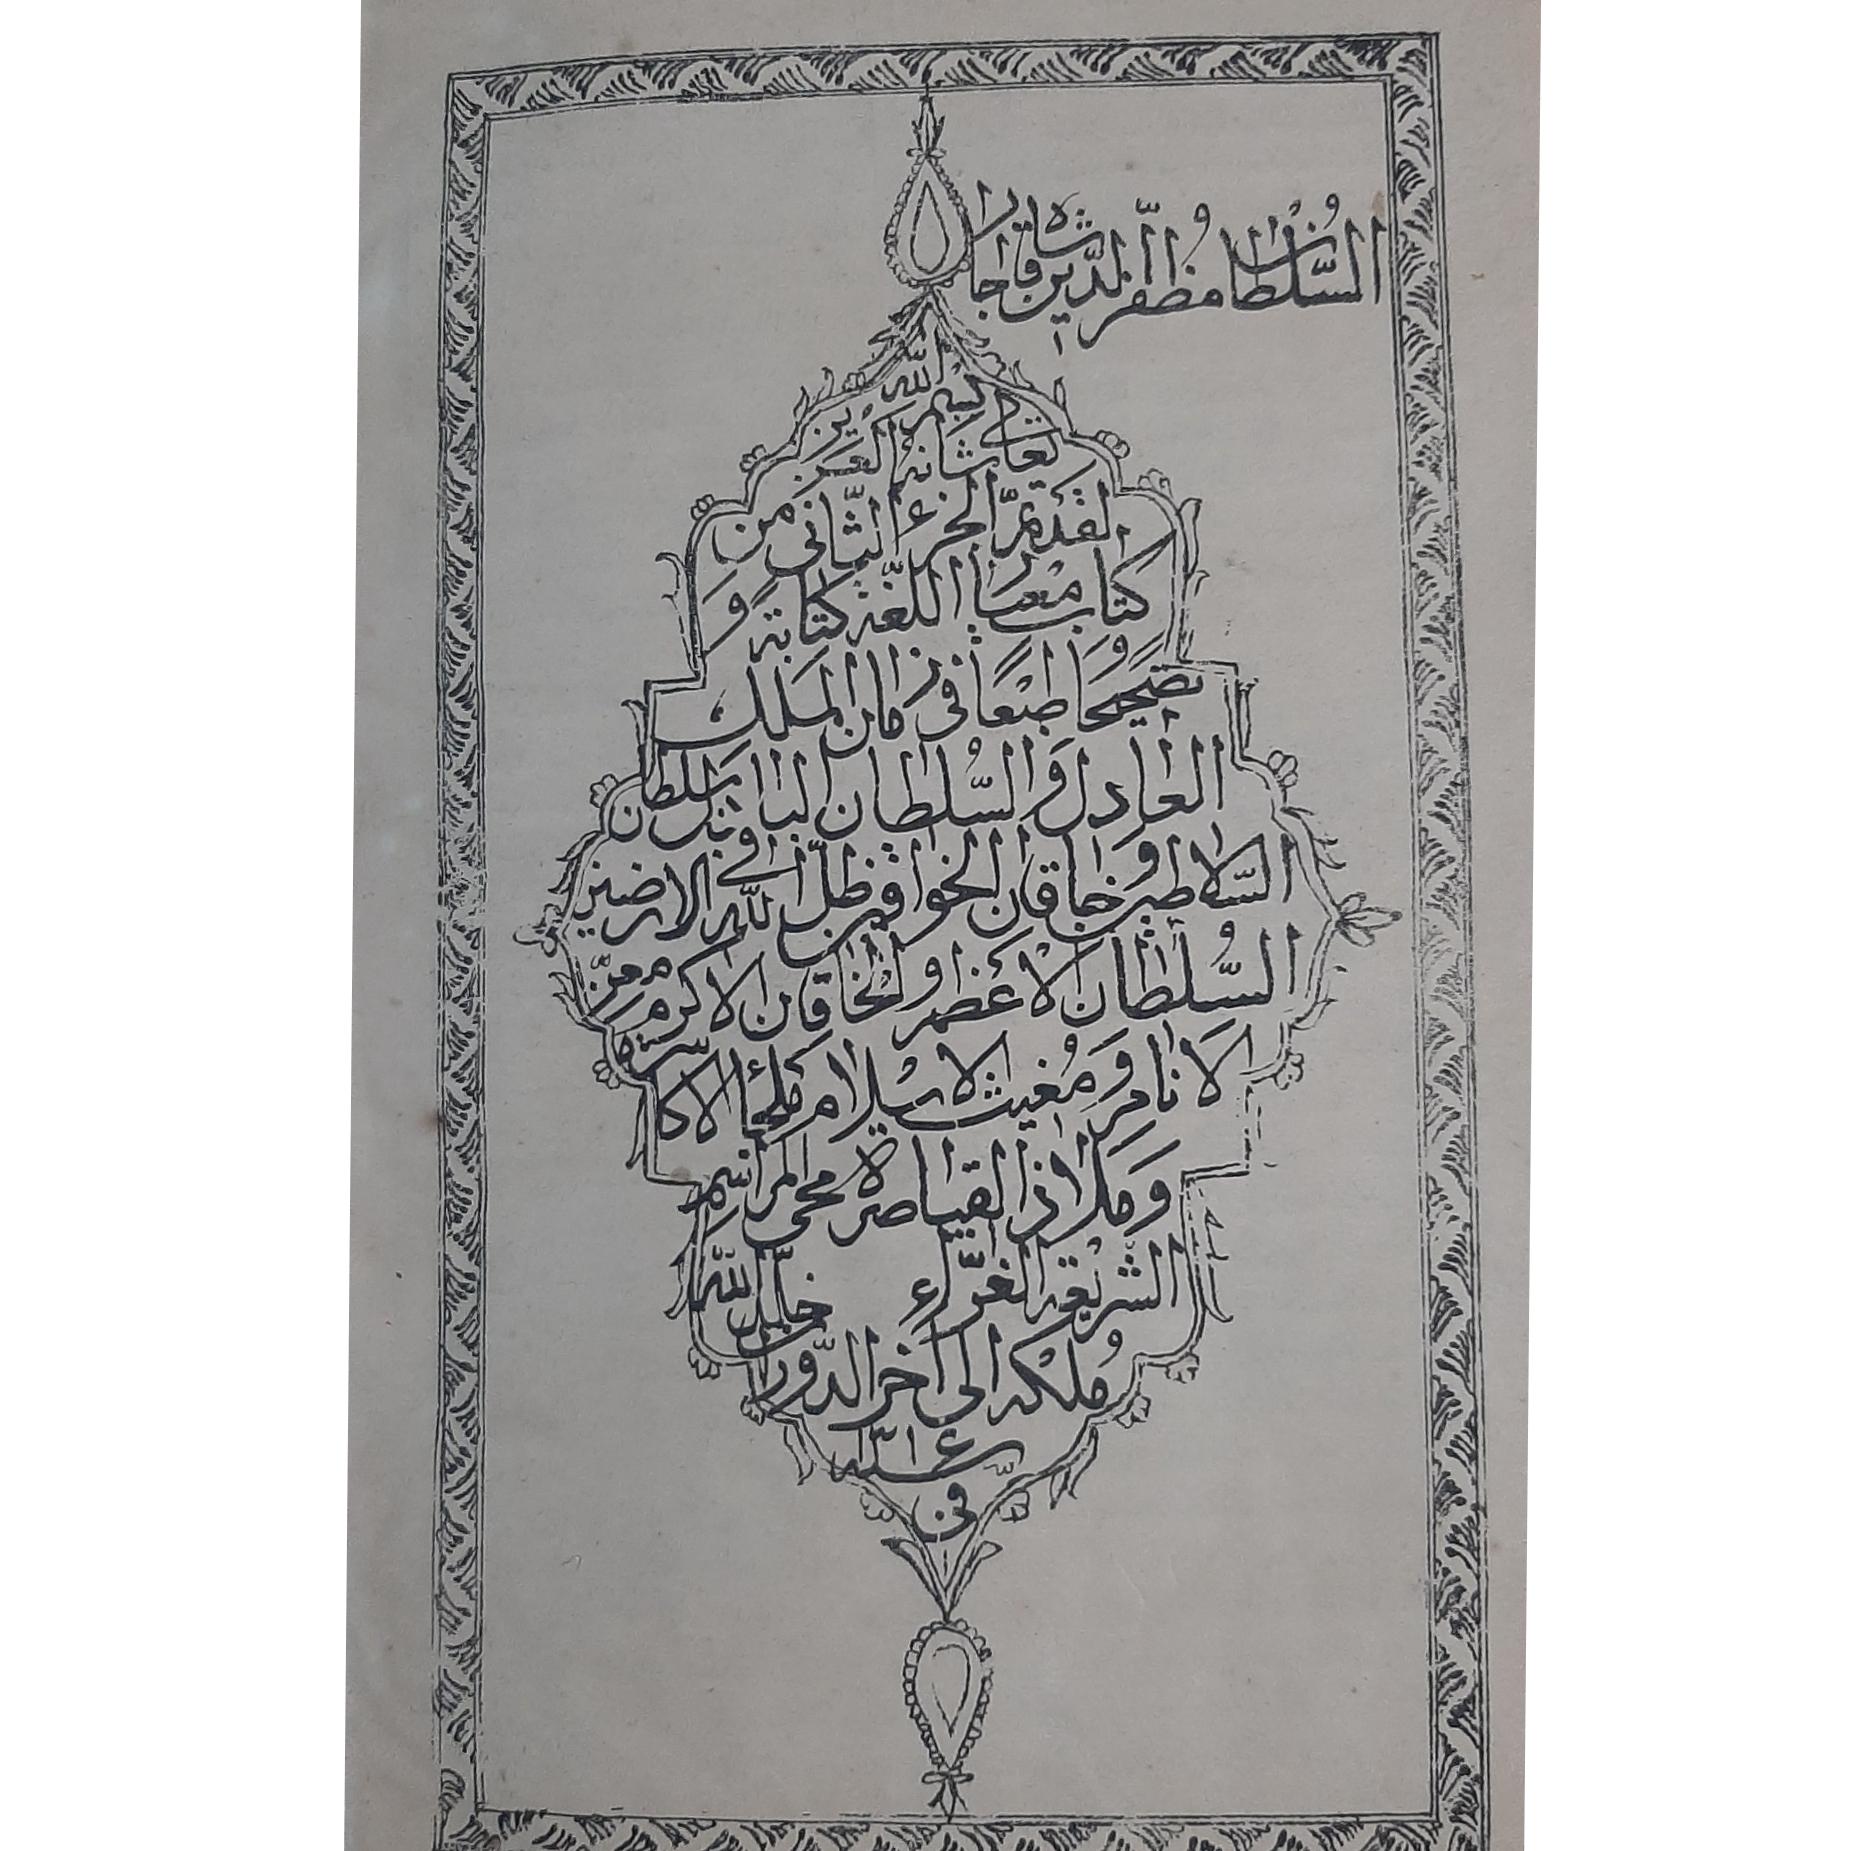 السُّلْطانُ مُظفّر الدّين شاه قاجار
بسم الله
تعالى شأنه العَزيز
لقد تمّ الجزء الثّانى من
كتاب معيار اللّغة كتابةً وَ
تصحيحًا وَ طبْعًا فى زمان الملك
العادل وَ السُّلطان الباذل سلطان
السّلاطين و خاقان الخواقين ظلّ الله فى الارضين
السُّلطان الاعْظم و الخاقان الاكرم معزّ
الانام وَ مُغيث الاسْلام ملجأ الاكاسرة
وَ ملاذ القياصرة محى المراسم
الشّريعة الغرّاء خلّد الله
مُلْكه الى آخر الدّوران
فى